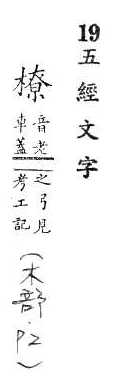 19五經文字
橑音老車蓋之弓見考工記(木部·P2)